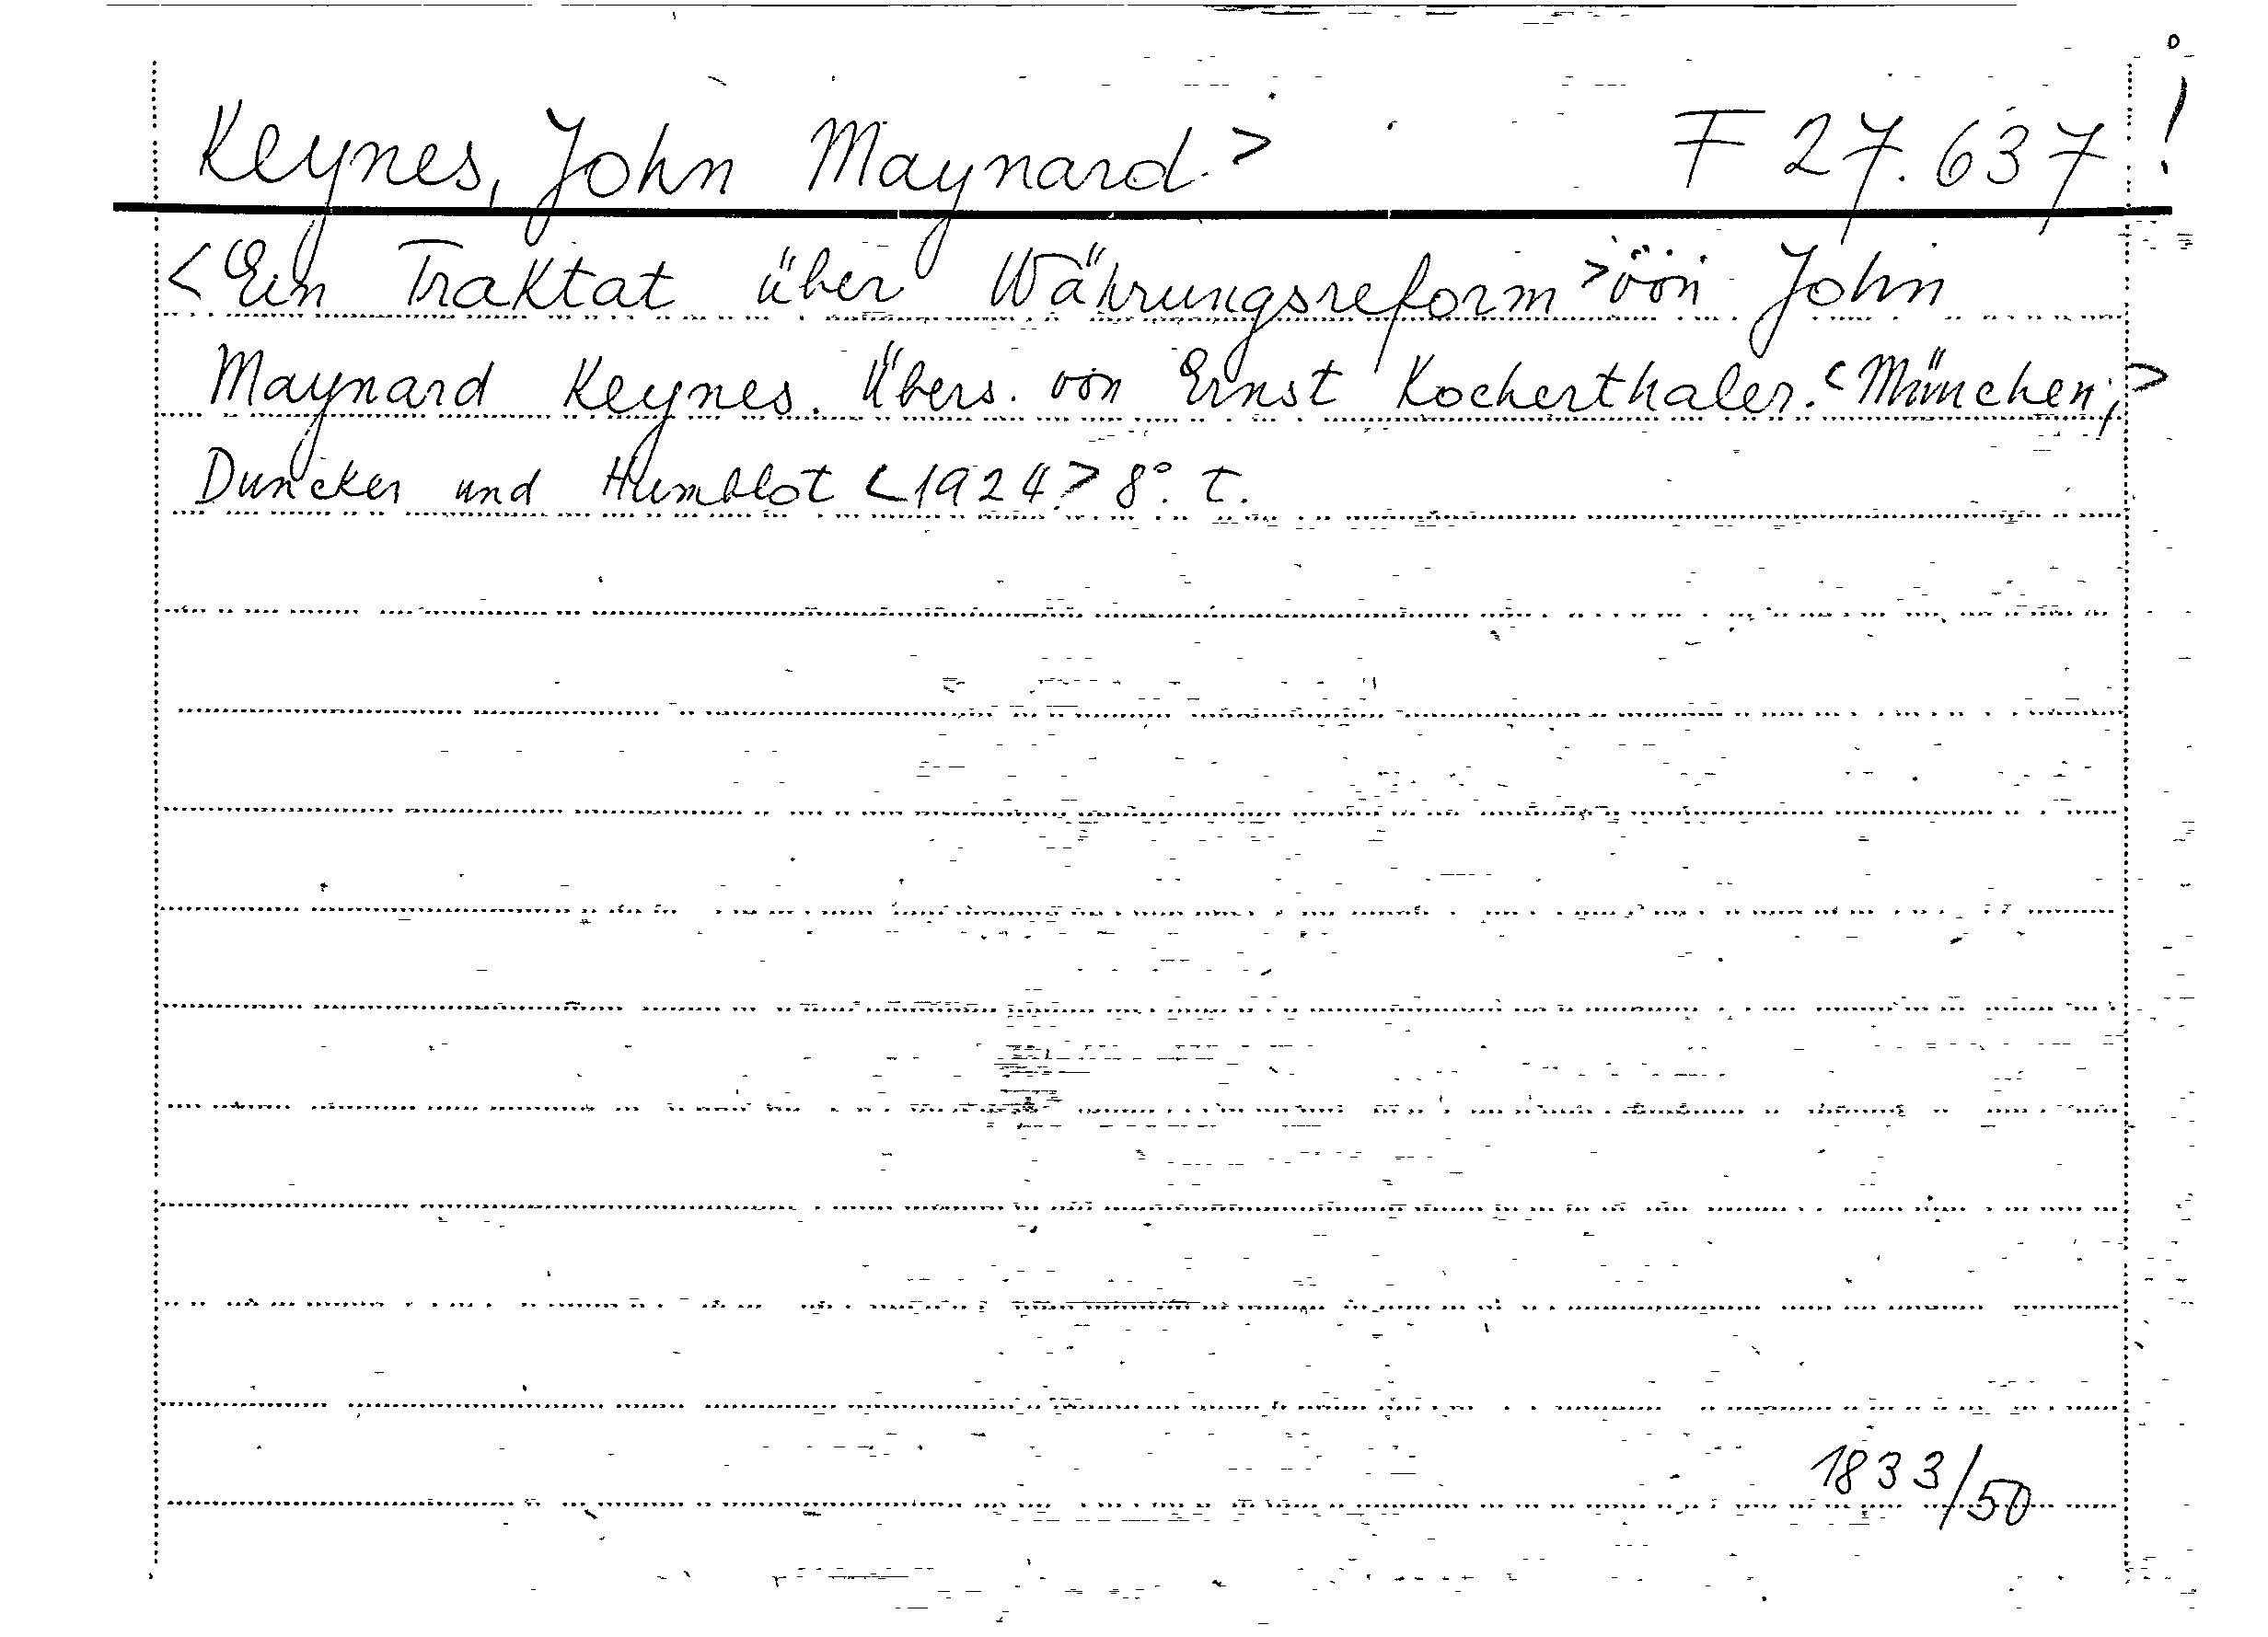 Keynes, John Maynard.> F 27.637 !
<Ein Traktat über Währungsreform> von John
Maynard Keynes. Übers. von Ernst Kocherthaler. <München,>
Duncker und Humblot <1924> 8°. T.
1833/50